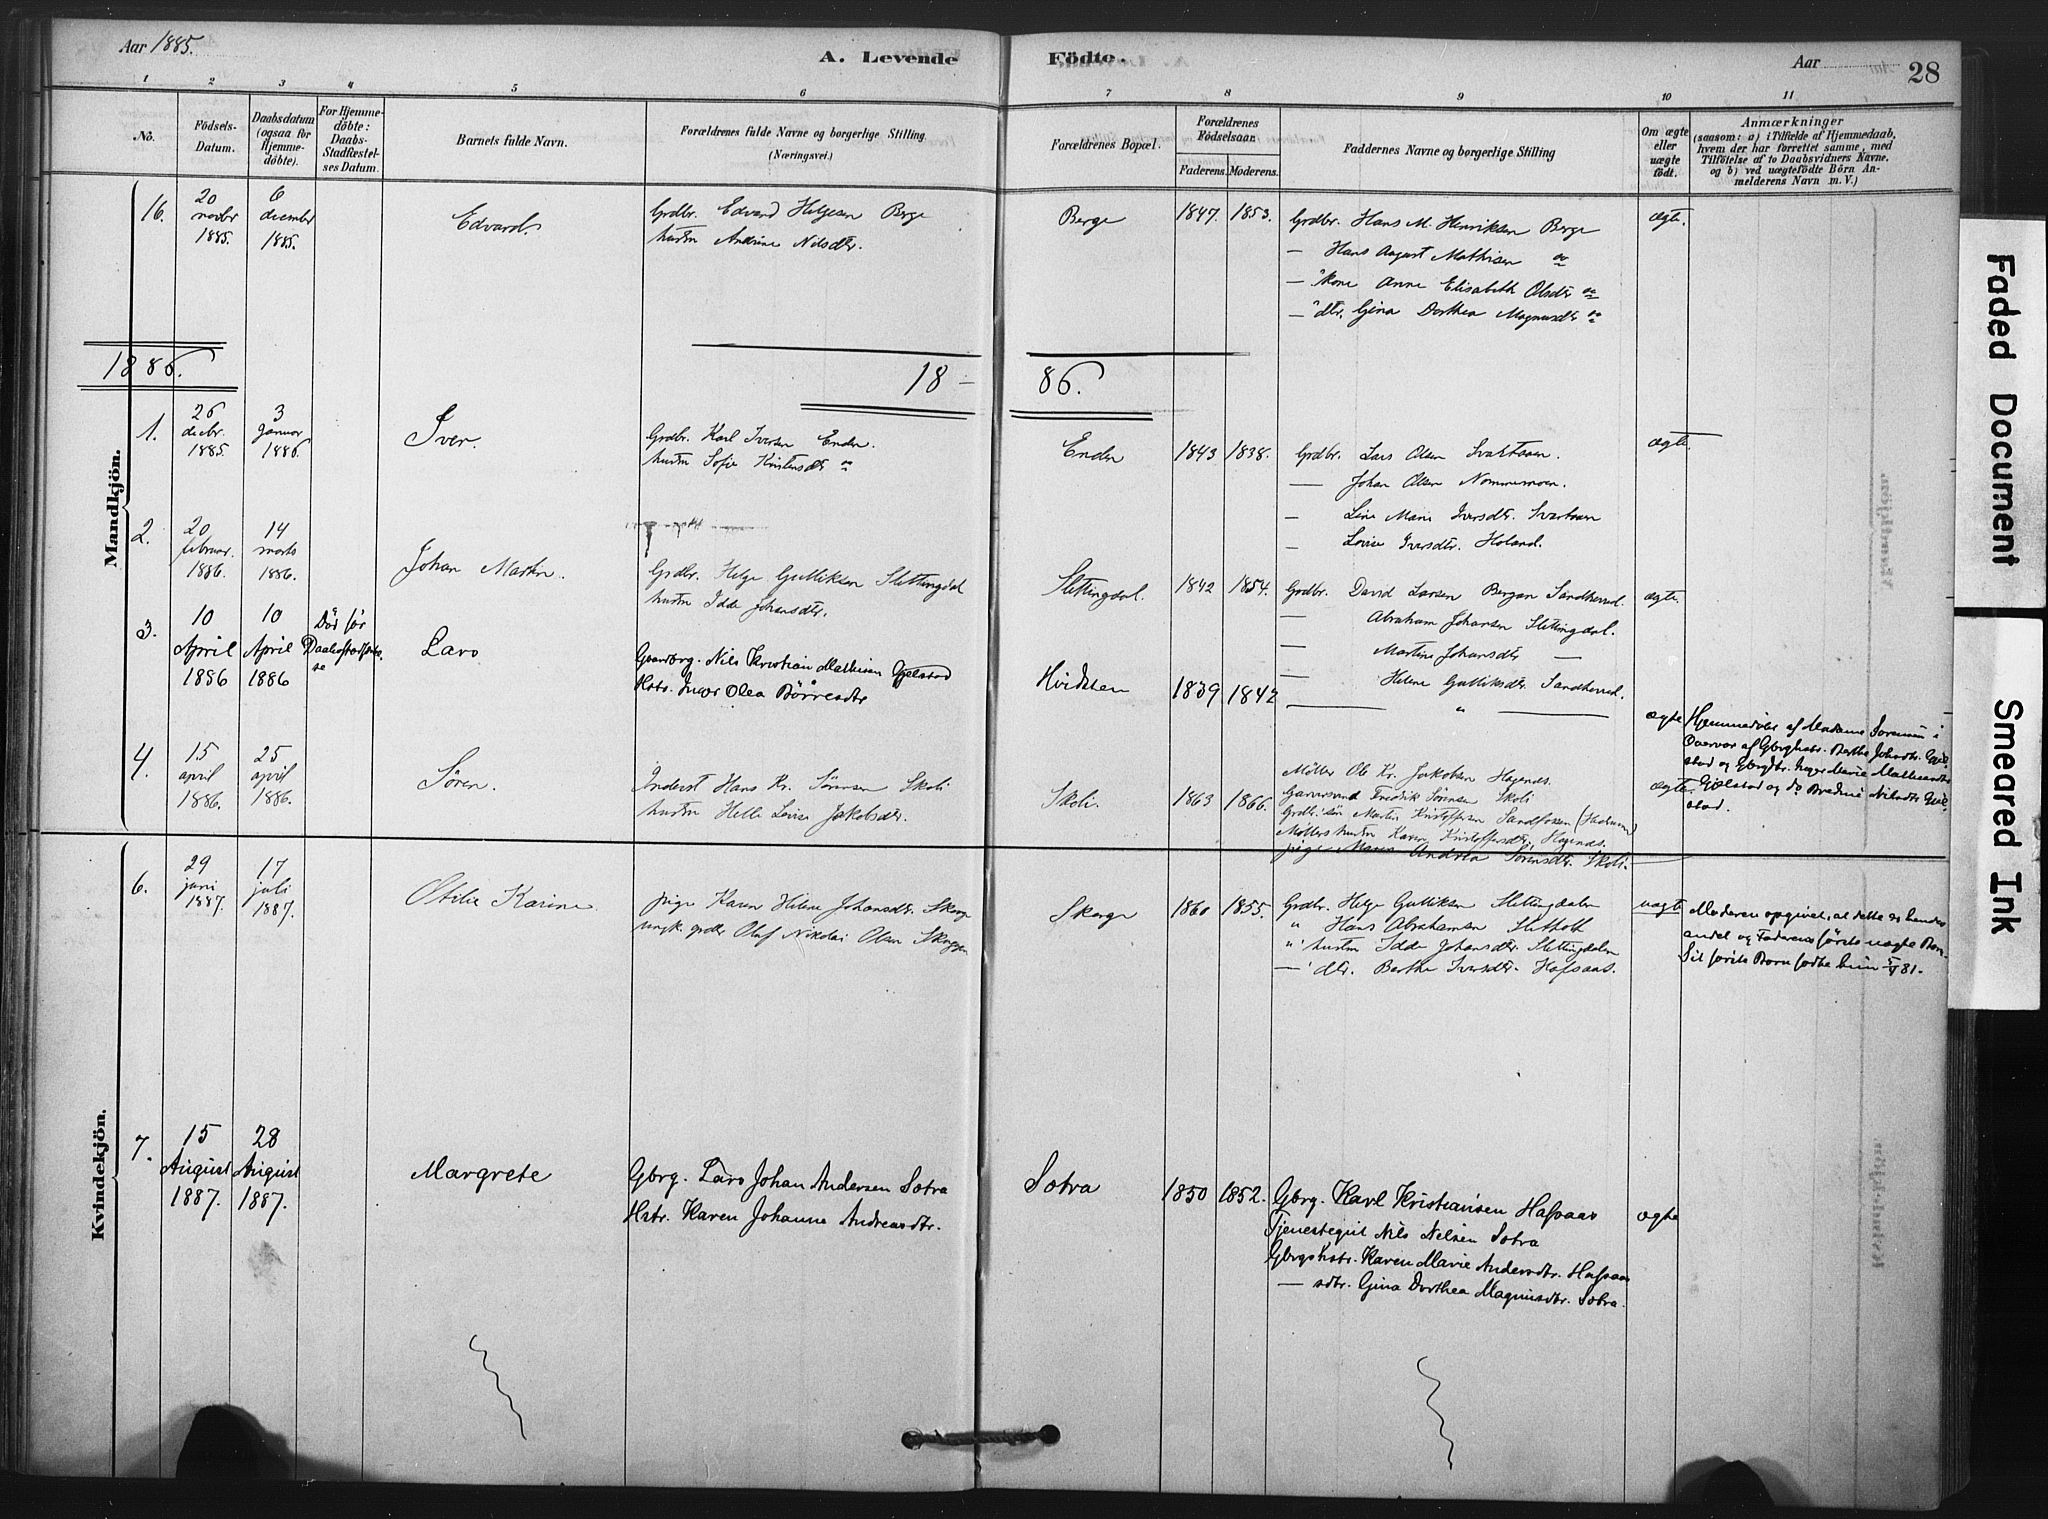 Aar 1885.
A. Levende Födte.
Aar
28
1 2 3 4 5 6 7 8 9 10 11
No.
Födsels-
Datum.
Daabsdatum
(ogsaa for
Hjemme-
döbte).
For Hjemme-
döbte:
Daabs-
Stadfæstel-
ses Datum.
Barnets fulde Navn.
Forældrenes fulde Navne og borgerlige Stilling.
(Næringsvei.)
Forældrenes Bopæl.
Forældrenes
Födselsaar.
Faderens. Moderens.
Faddernes Navne og borgerlige Stilling
Om ægte
eller
uægte
födt.
Anmærkninger
(saasom: a) i Tilfælde af Hjemmedaab,
hvem der har forrettet samme, med
Tilföielse af to Daabsvidners Navne.
og b) ved uægtefödte Börn An-
melderens Navn m. V.)
Mandkjön.
16.
20
novbr
1885.
6
december
1885.
Edvard.
Grdbr. Edvard Helgesen Berge
hustru Andrine Nilsdtr.
Berge
1847. 1853.
Grdbr. Hans M. Henriksen Berge
— Hans August Mathisen
— kone Anne Elisabeth Olsdtr
— dtr. Gina Dorthea Magnusdtr
ægte.
1886.
18 — 86.
1.
26
decbr
1885
3
Januar
1886
Iver.
Grdbr. Karl Iversen Enden.
hustru Sofie Kristensdtr
Enden
1843 1838.
Grdbr. Lars Olsen Svartaaen.
— Johan Olsen Nommemoen.
— Line Marie Iversdtr. Svartaaen
— Lovise Iversdtr. Holand.
ægte.
2.
20
februar.
1886.
14
marts
1886.
Johan Martin.
Grdbr. Helge Gulliksen Slettingdal
hustru Idde Johansdtr.
Slettingdal.
1842 1854.
Grdbr. David Larsen Bergan Sandherred.
— Abraham Johansen Slettingdal.
— Martine Johansdtr —
— Helene Gulliksdtr. Sandherred.
ægte.
3.
10
April
1886
10
April
1886
Död för
Lars
Gaardbrg. Nils Kristian Mathisen Gjelstad
Hstr. Inger Olea Börresdtr
Hvidsten
1839 1842
— " —
ægte
Hjemmedöbt af Madame Sorensen i
Overvær af Gbrghstr. Berthe Johsdtr. Gjel-
stad og Gbrgdtr. Inger Marie Mathisdtr
Gjelstad og do Bredine Nilsdtr Gjel-
stad.
4.
15
april
1886.
25
april
1886.
Søren.
Inderst Hans Kr. Sørensen Skoli
hustru Helle Lovise Jakobsdtr.
Skoli.
1863 1866.
Møller Ole Kr. Jakobsen Hagenes.
Garversvend Fredrik Sørensen Skoli
Grdbr. søn Martin Kristoffersen Sandfossen (Hedrum)
Møllers hustru Karen Kristoffersdtr. Hagenes.
pige Maren Andrea Sørensdtr. Skoli.
ægte.
Kvindekjön.
6.
29
juni
1887.
17
juli
1887.
Otilie Karine
pige Karen Helene Johansdtr. Skorge
ungk. grdbr Oluf Nikolai Olsen Skoggen
Skorge
1860 1855.
Grdbr. Helge Gulliksen Slettingdalen
" Hans Abrahamsen Sletholt
" hustru Idde Johansdtr. Slettingdalen
— dtr. Berthe Iversdtr. Hafsaas.
uægte
Moderen opgivet, at dette er hendes
andet og Faderens förste uægte Barn.
Sit förste Barn födte hun 5/5 81.
7.
15
August
1887.
28
August
1887.
Margrete
Gbrg. Lars Johan Andersen Sotra
Hstr. Karen Johanne Andreasdtr.
Sotra
1850 1852.
Gbrg. Karl Kristiansen Hafsaas
Tjenestegut Nils Nilsen Sotra
Gbrgshstr. Karen Marie Andersdtr. Hafsaas
— sdtr. Gina Dorthea Magnusdtr. Sotra.
ægte
Faded Document
Smeared Ink